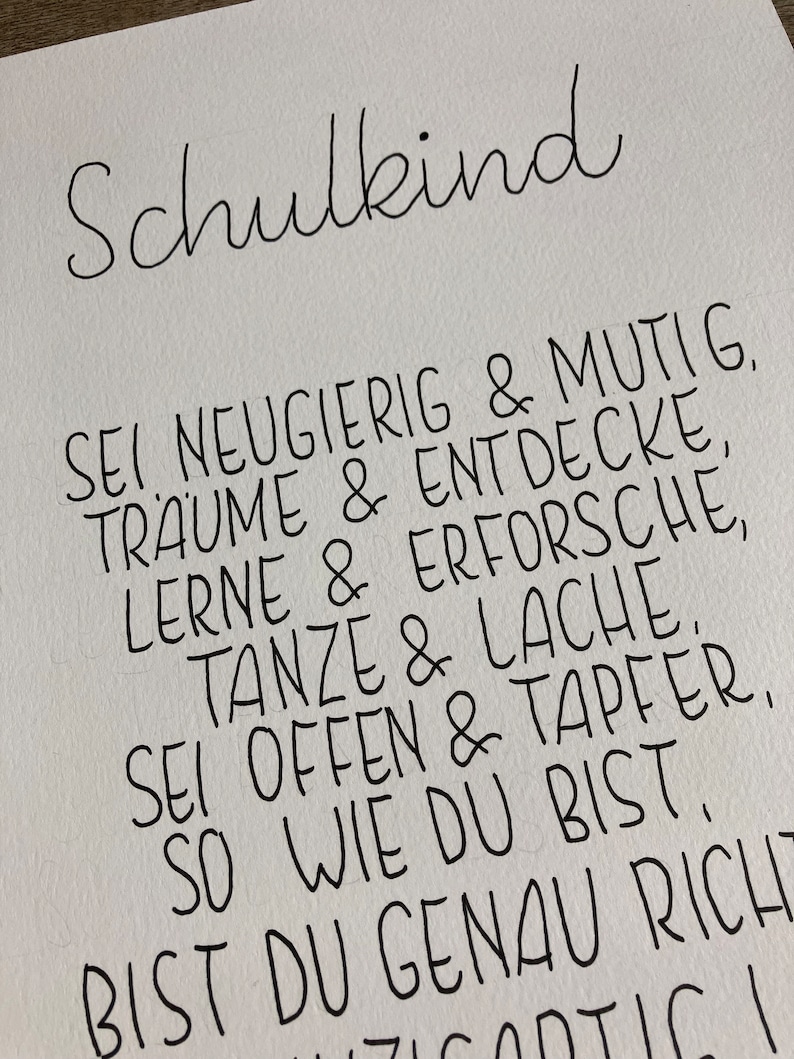 Schulkind
SEI NEUGIERIG & MUTIG,
TRÄUME & ENTDECKE,
LERNE & ERFORSCHE,
TANZE & LACHE,
SEI OFFEN & TAPFER,
SO WIE DU BIST,
BIST DU GENAU RICHT
NZIGARTIG !